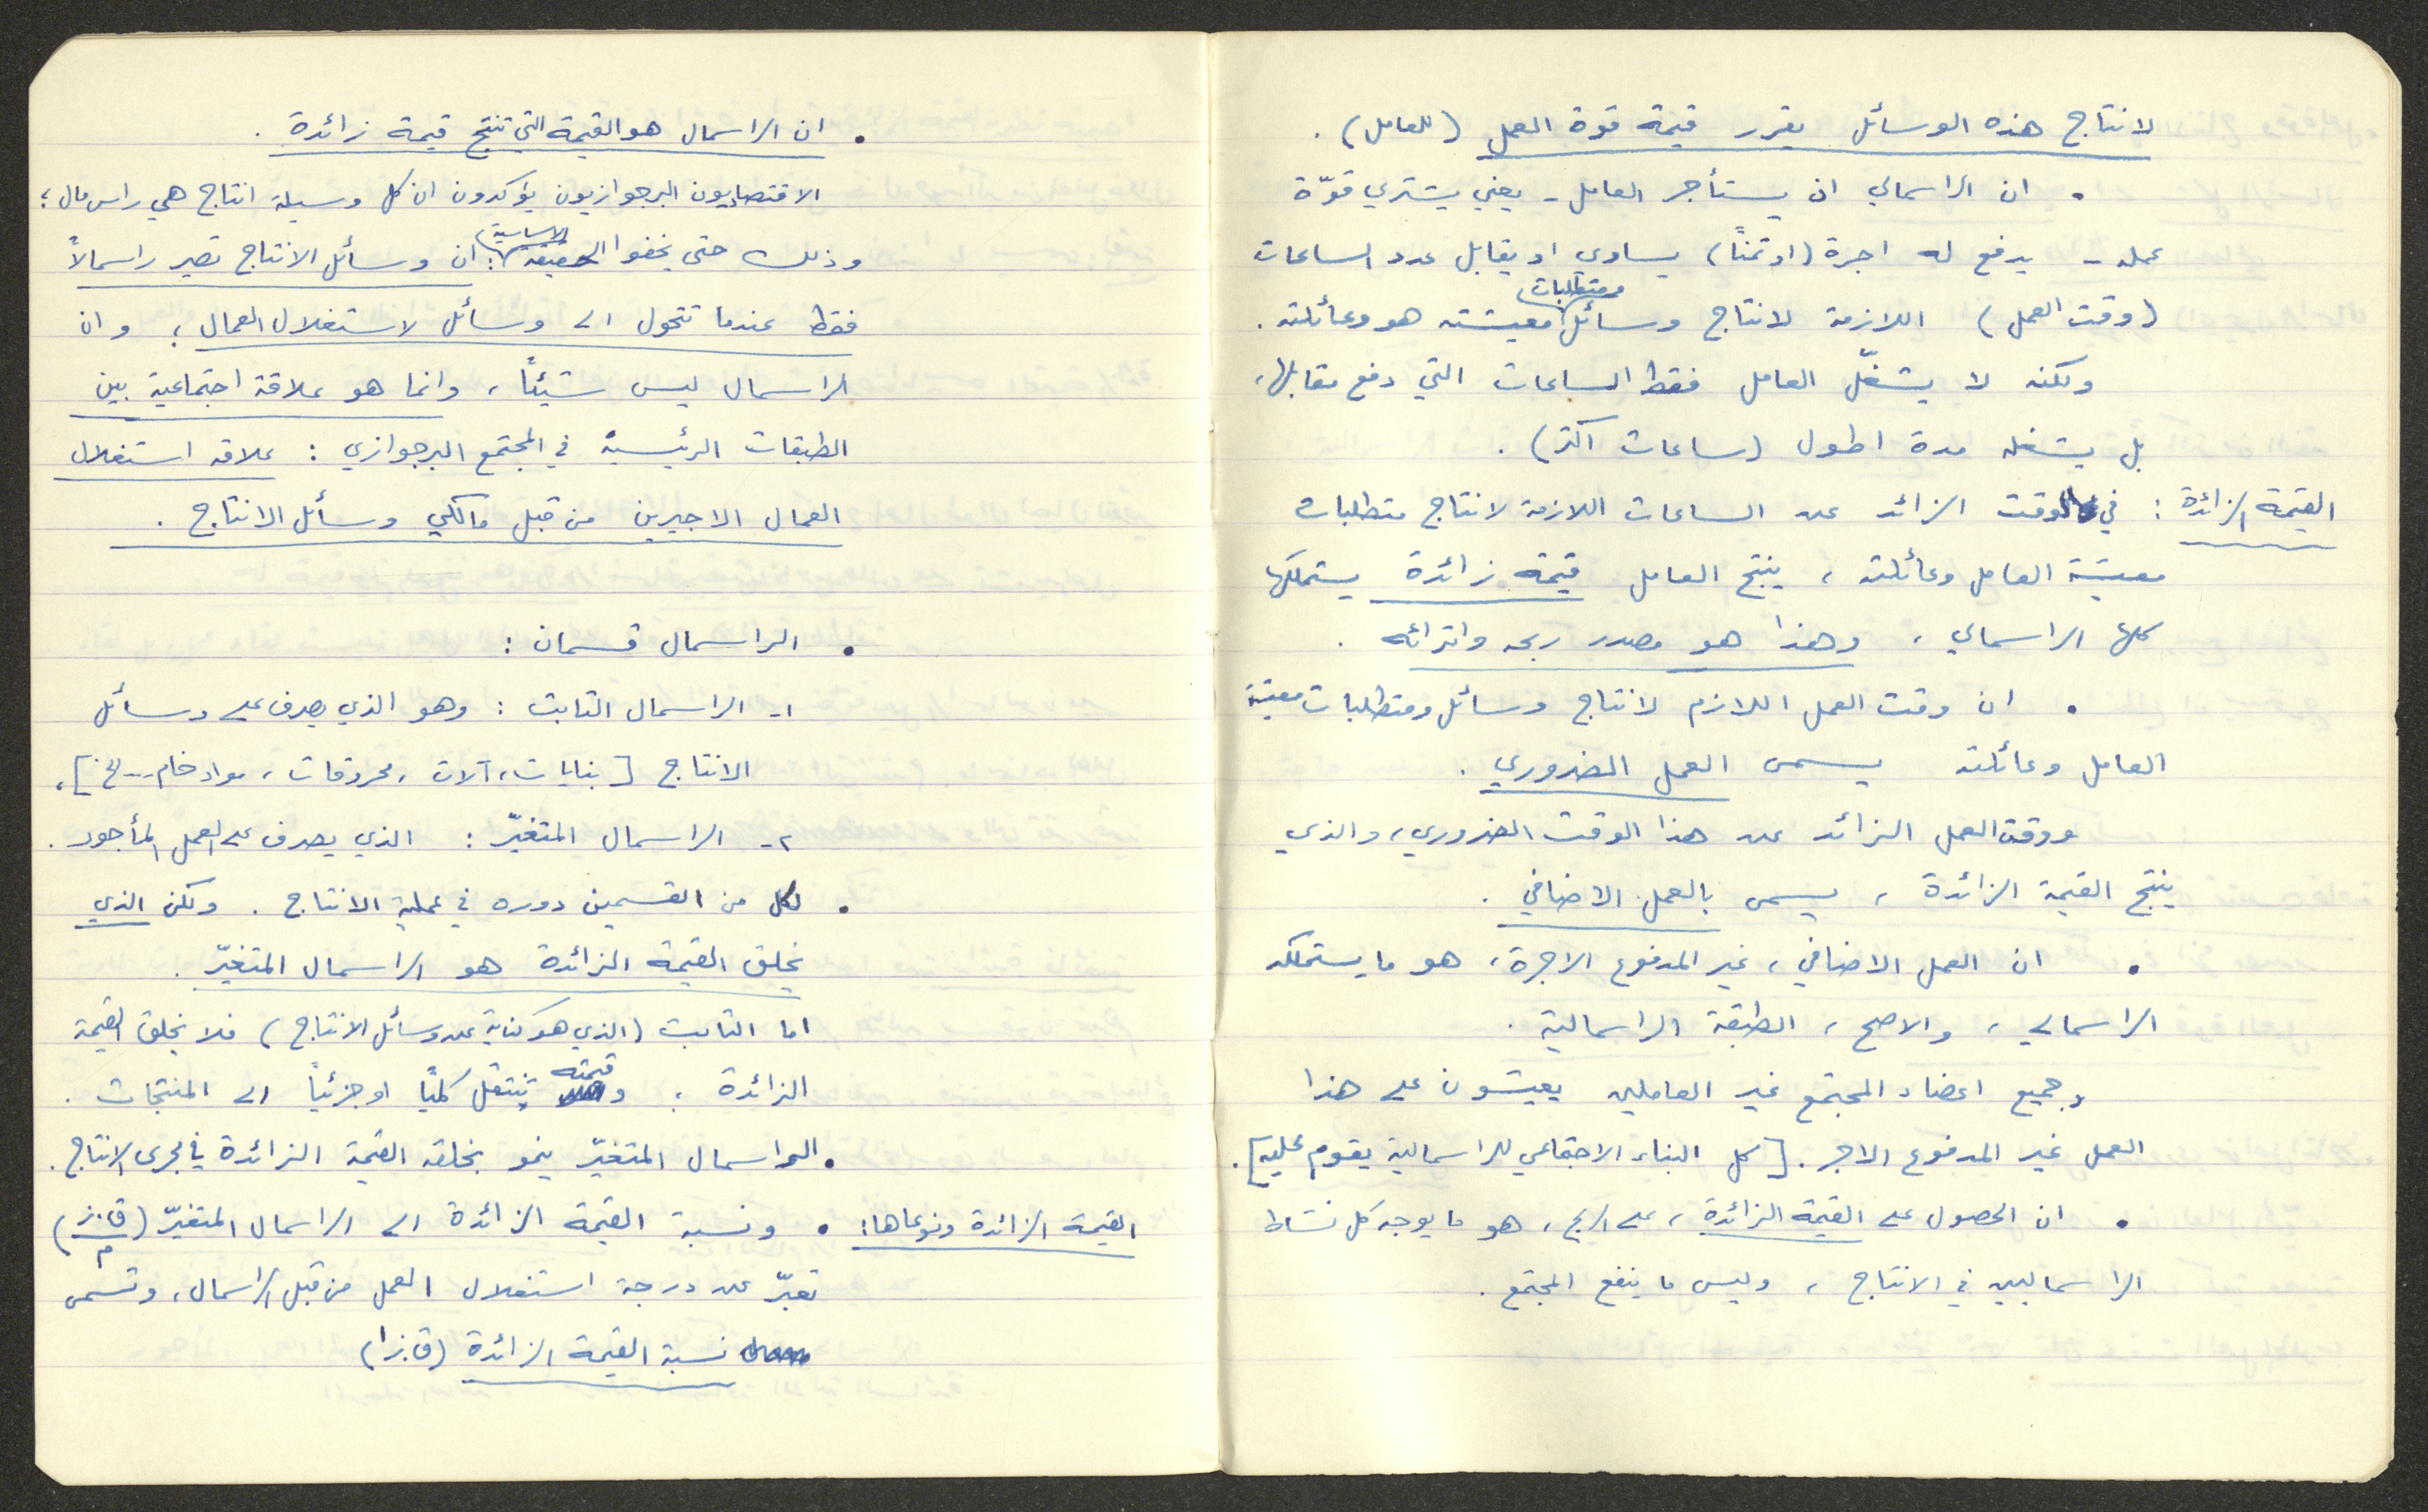 لانتاج هذه الوسائل يقرر قيمة قوة العمل (للعامل) .
• ان الراسمالي اذ يستأجر العامل - يعني يشتري قوّة
عمله - يدفع له اجرة (او ثمناً) يساوي او يقابل عدد الساعات
(وقت العمل) اللازمة لانتاج وسائل ومتطلبات معيشته هو وعائلته .
ولكنه لا يشغّل العامل فقط الساعات التي دفع مقابلها ،
بل يشغله مدة اطول (ساعات اكثر) .
القيمة الزائدة : في الوقت الزائد عن الساعات اللازمة لانتاج متطلبات
معيشة العامل وعائلته ، ينتج العامل قيمة زائدة يستملكها
كلها الراسمالي ، وهذا هو مصدر ربحه واثرائه .
• ان وقت العمل اللازم لانتاج وسائل ومتطلبات معيشة
العامل وعائلته يسمى العمل الضروري .
ووقت العمل الزائد عن هذا الوقت الضروري ، والذي
ينتج القيمة الزائدة ، يسمى بالعمل الاضافي .
• ان العمل الاضافي ، غير المدفوع الاجرة ، هو ما يستملكه
الراسمالي ، والاصح ، الطبقة الراسمالية .
وجميع اعضاء المجتمع غير العاملين يعيشون على هذا
العمل غير المدفوع الاجر . [كل البناء الاجتماعي للراسمالية يقوم عليه] .
• ان الحصول على القيمة الزائدة ، على الربح ، هو ما يوجه كل نشاط
الراسماليين في الانتاج ، وليس ما ينفع المجتمع .
• ان الراسمال هو القيمة التي تنتج قيمة زائدة .
الاقتصاديون البرجوازيون يؤكدون ان كل وسيلة انتاج هي راس مال ؛
وذلك حتى يخفوا الحقيقة الاساسية : ان وسائل الانتاج تصير راسمالاً
فقط عندما تتحول الى وسائل لاستغلال العمال ؛ وان
الراسمال ليس شيئاً ، وانما هو علاقة اجتماعية بين
الطبقات الرئيسية في المجتمع البرجوازي : علاقة استغلال
العمال الاجيرين من قبل مالكي وسائل الانتاج .
• الراسمال قسمان :
١- الراسمال الثابت : وهو الذي يصرف على وسائل
الانتاج [بنايات ، آلات ، محروقات ، مواد خام ... الخ] ،
٢- الراسمال المتغيّر : الذي يصرف على العمل المأجور .
• لكل من القسمين دوره في عملية الانتاج . ولكن الذي
يخلق القيمة الزائدة هو الراسمال المتغيّر .
اما الثابت (الذي هو كناية عن وسائل الانتاج) فلا يخلق القيمة
الزائدة ؛ وقيمته تنتقل كلياً او جزئياً الى المنتجات .
• الراسمال المتغيّر ينمو بخلقه القيمة الزائدة في مجرى الانتاج .
القيمة الزائدة ونوعاها : • ونسبة القيمة الزائدة الى الراسمال المتغيّر (ق.ز/م)
تعبّر عن درجة استغلال العمل من قبل الراسمال ، وتسمى
نسبة القيمة الزائدة (ق.زَ)